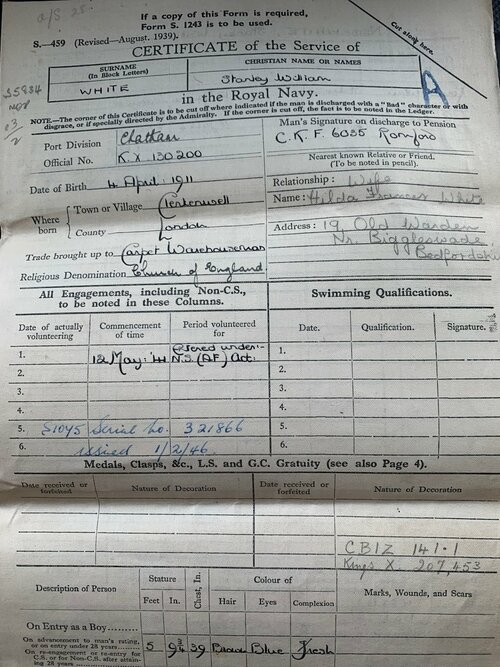 a/S 25.
If a copy of this Form is required,
Form S. 1243 is to be used.
Cut along here.
S.—459 (Revised—August, 1939).
CERTIFICATE of the Service of
SURNAME
(In Block Letters)
CHRISTIAN NAME OR NAMES
WHITE
Stanley William
A
in the Royal Navy.
NOTE.—The corner of this Certificate is to be cut off where indicated if the man is discharged with a "Bad" character or with
disgrace, or if specially directed by the Admiralty. If the corner is cut off, the fact is to be noted in the Ledger.
Port Division Chatham
Official No. KX 130200
Man's Signature on discharge to Pension
C.K.F. 6035 Romford
Nearest known Relative or Friend.
(To be noted in pencil.)
Date of Birth 4 April 1911
Relationship: Wife
Name: Hilda Frances White
Where
born
Town or Village Clerkenwell
County London
Address: 19, Old Warden
Nr. Biggleswade
Bedfordshire
Trade brought up to Carpet Warehouseman
Religious Denomination Church of England
All Engagements, including Non-C.S.,
to be noted in these Columns.
Swimming Qualifications.
Date of actually
volunteering
Commencement
of time
Period volunteered
for
Date.
Qualification.
Signature.
1. 12 May '41 N.S. (A.F.) Act. 1.
2. 2.
3. 3.
4. 4.
5. S1045 Serial No. 321866 5.
6. issued 1/2/46. 6.
Medals, Clasps, &c., L.S. and G.C. Gratuity (see also Page 4).
Date received or
forfeited
Nature of Decoration
Date received or
forfeited
Nature of Decoration
CBIZ 141.1
Kings X 207,453
Description of Person
Stature
Feet
In.
Chest, In.
Colour of
Hair
Eyes
Complexion
Marks, Wounds, and Scars
On Entry as a Boy
On advancement to man's rating,
or on entry under 28 years
On re-engagement or re-entry for
C.S. or for Non-C.S. after attain-
ing 28 years
5 9¾ 39 Brown Blue Fresh